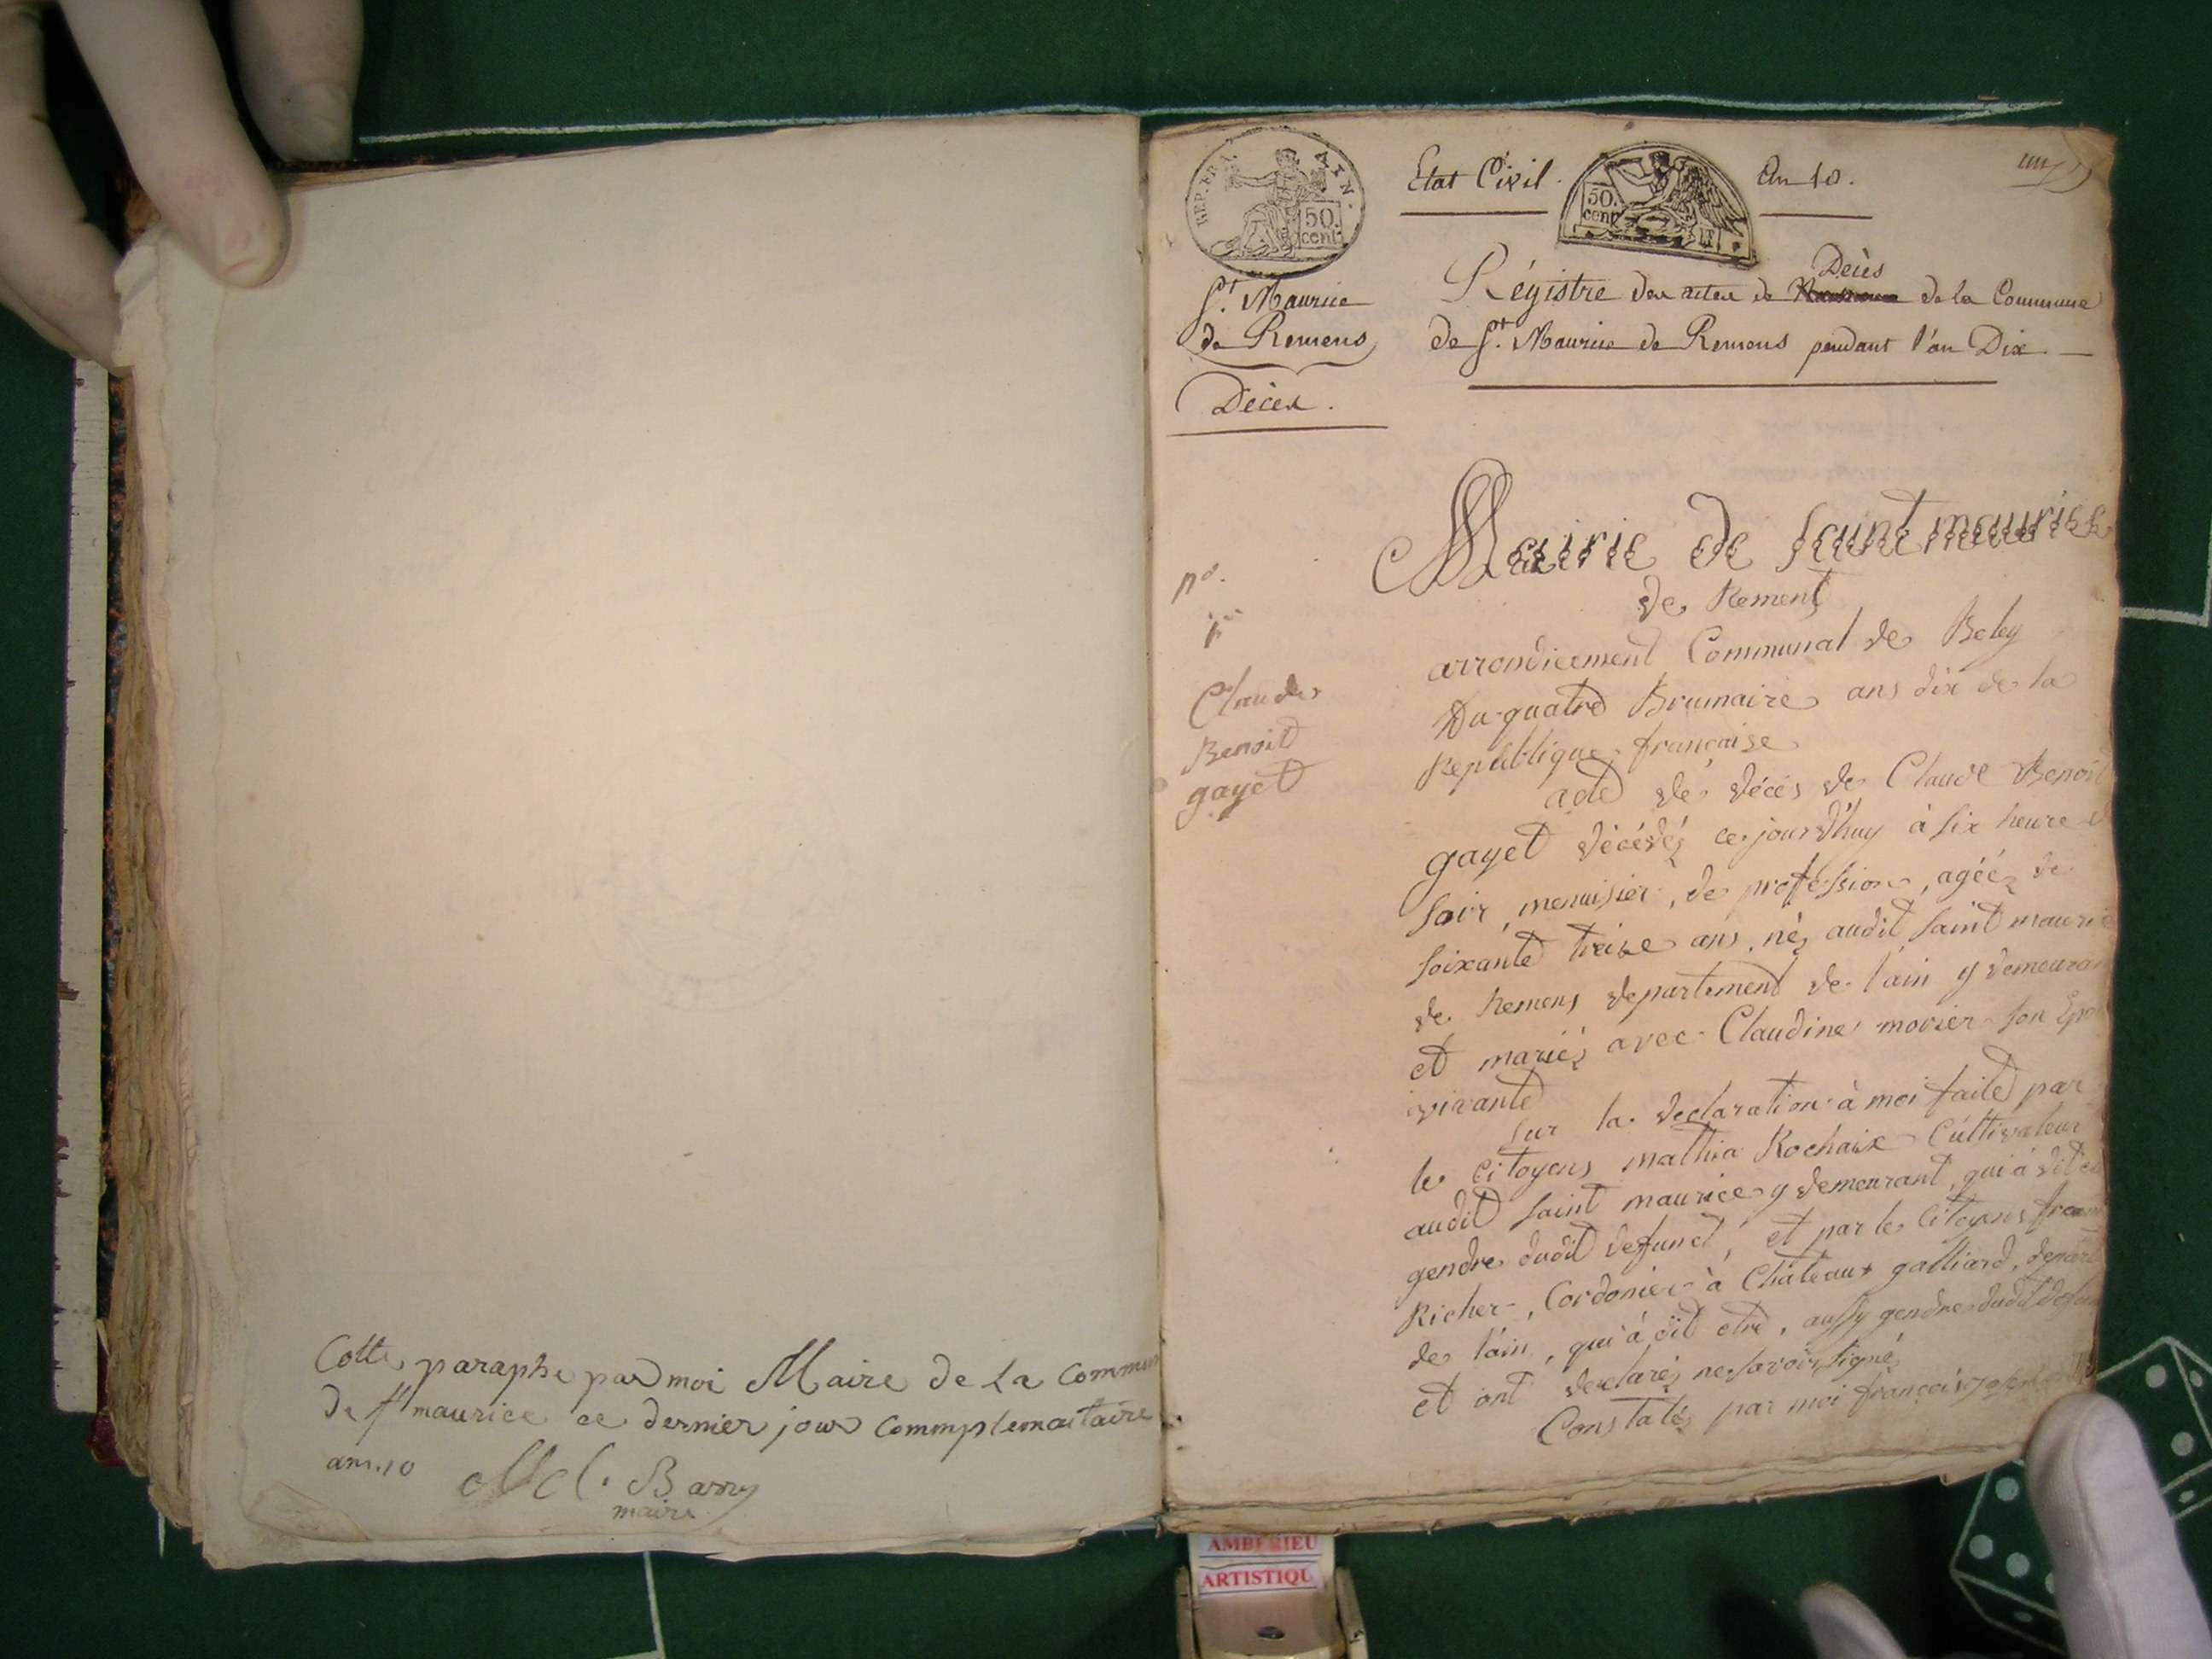 Cotte paraphe par moi Maire de La Commun
De st maurice ce dernier jour Commplemantaire
an. 10
Barry
maire
REP. FRA. AYN.
50.
cent.
Etat Civil.
50.
cent
An 10.
St. Maurice
de Remens
Décès.
Régistre des actes de Décès de la Commune
de St. Maurice de Remens pendant l'an Dix
Mairie de saint maurice
de Rement
no.
1er
Claude
Benoit
gayet
arrondicement Communal de Beley
Du quatre Brumaire ans dix de la
Republique française
acte de décés de Claude Benoit
gayet décédéz ce jourd'huy à six heure d
soir, menuisier, de profession, agééz de
soixante treize ans, néz audit saint mauric
de Remens departement de l'ain y demeuran
et mariéz avec Claudine movier son Epo
vivante
sur la declaration à moi faite par
le Citoyens mathia Rochaix Cultivateur
audit saint maurice y demeurant, qui à dit
gendre dudit defunct, et par le Citoyens
Richer, Cordonier à Châteaux galliard, depart
de l'ain, qui à dit etre, aussy gendre dudit defun
et ont declaréz ne savoir signé
Constatéz par moi françois